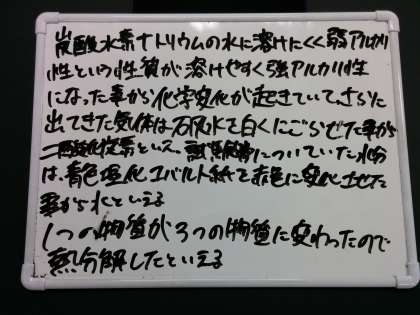 炭酸水素ナトリウムの水に溶けにくく弱アルカリ
性という性質が溶けやすく強アルカリ性
になった事から化学変化が起きていて、さらに
出てきた気体は石灰水を白くにごらせた事から
二酸化炭素といえ、についていた水分
は、青色塩化コバルト紙を赤色に変化させた
事から水といえる
1つの物質が3つの物質に変わったので
熱分解したといえる